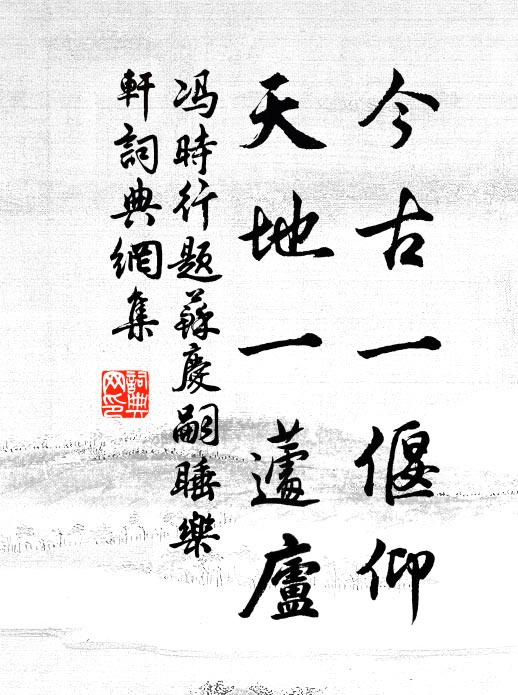 今古一偃仰
天地一蘧廬
冯時行题蘇慶嗣睡樂
軒詞典網集
詞典
网印